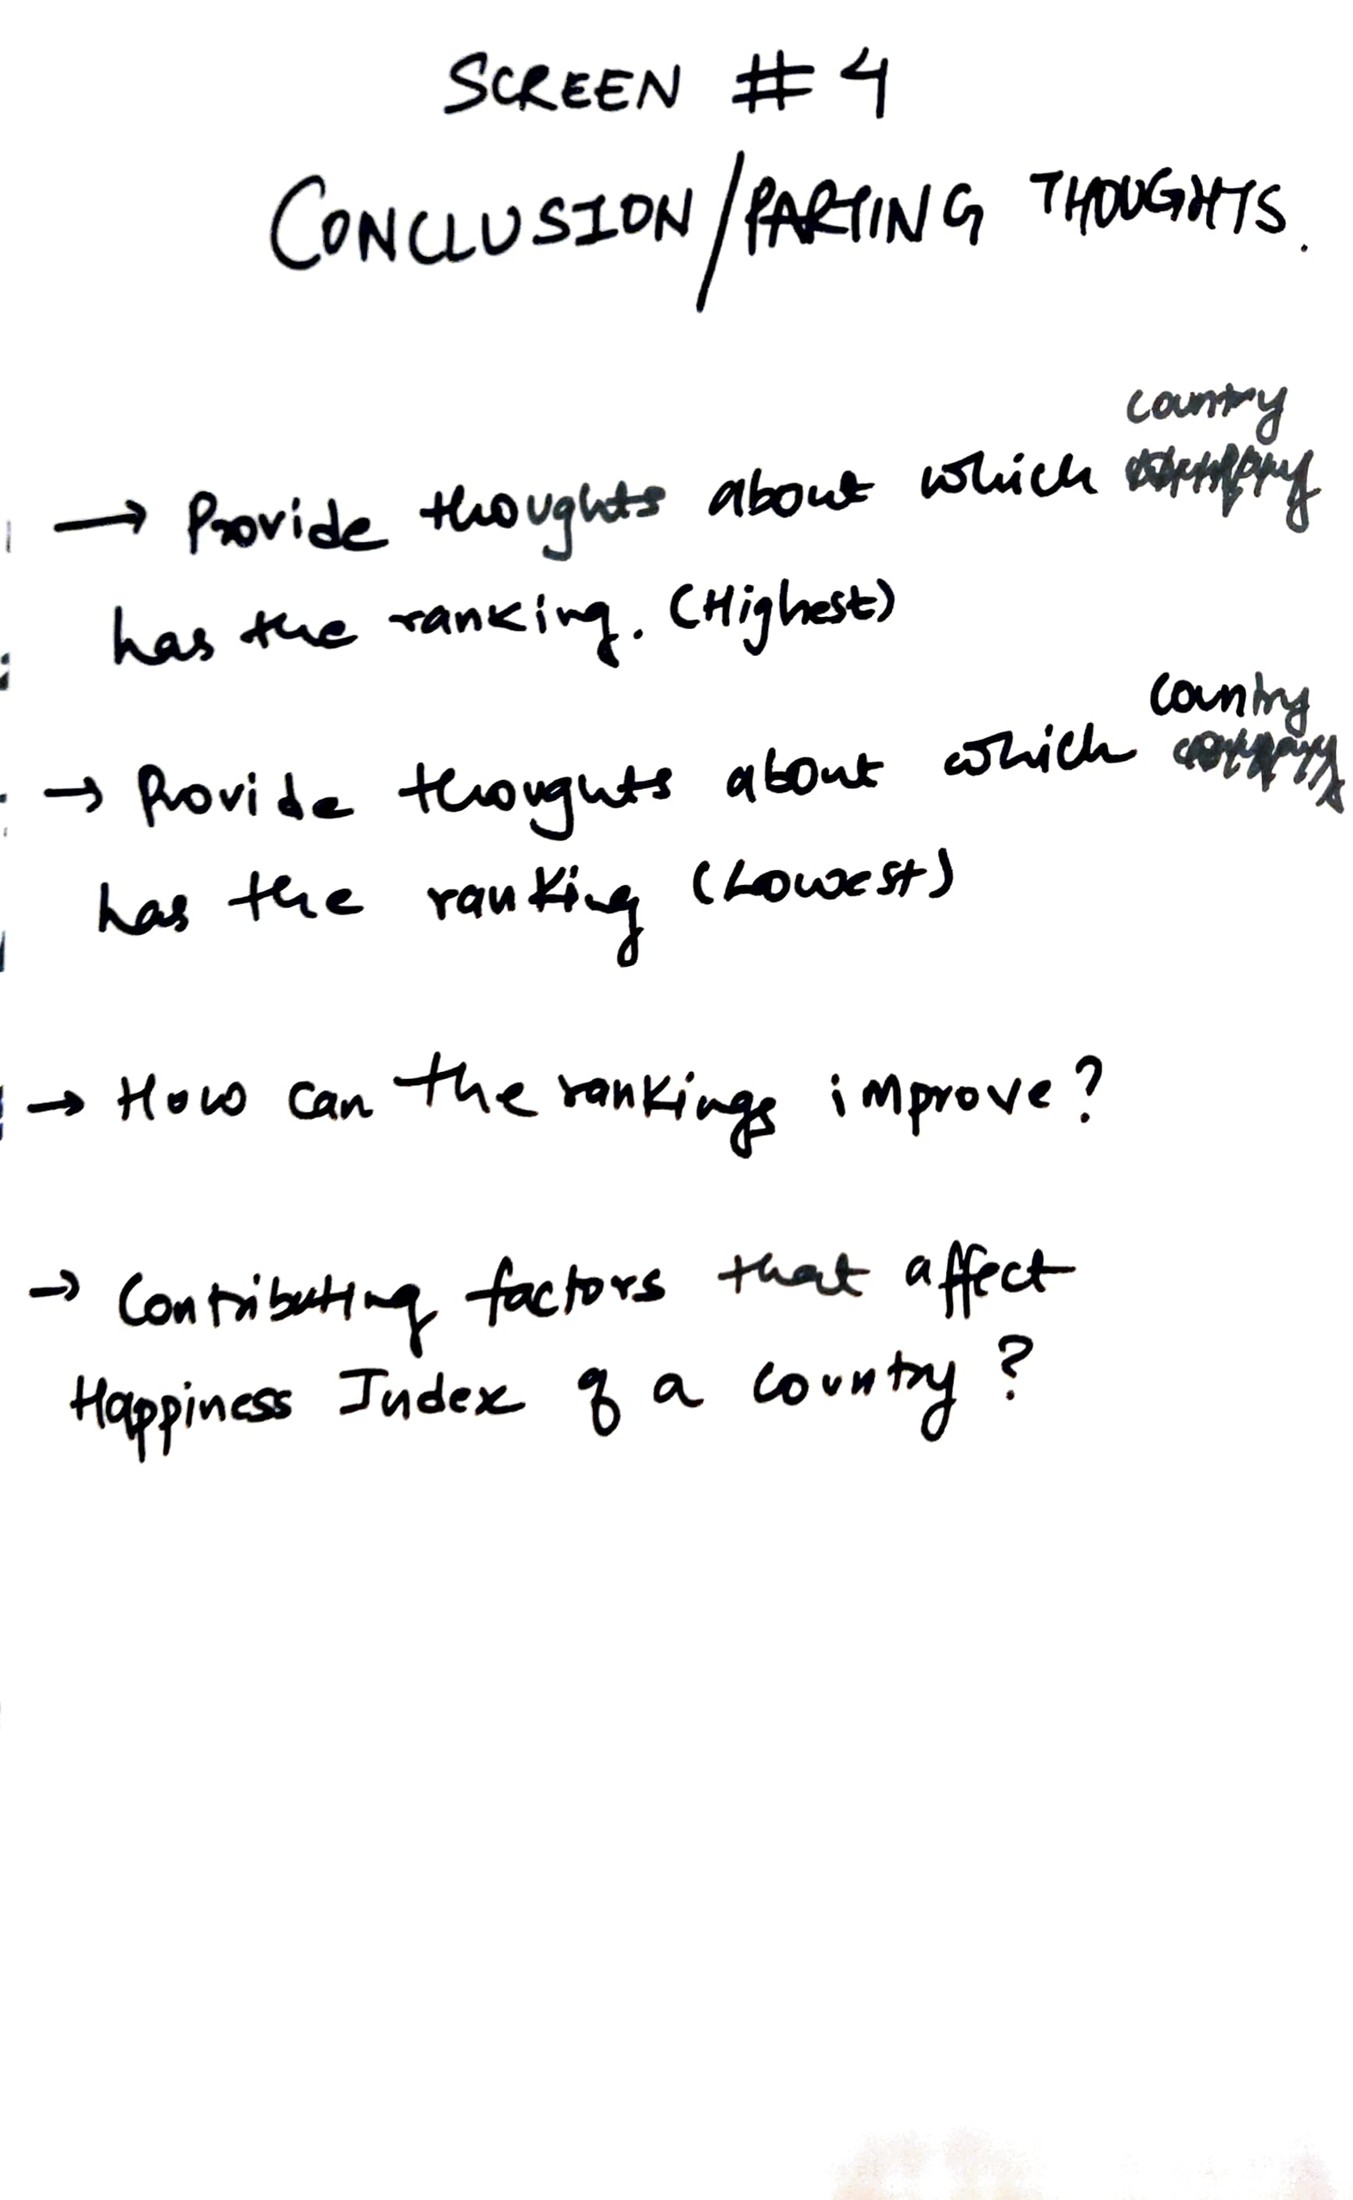 SCREEN # 4
CONCLUSION/PARTING THOUGHTS.
country
→ Provide thoughts about which
has the ranking. (Highest)
country
→ Provide thoughts about which
has the ranking (Lowest)
→ How can the rankings improve?
→ Contributing factors that affect
Happiness Index of a country?